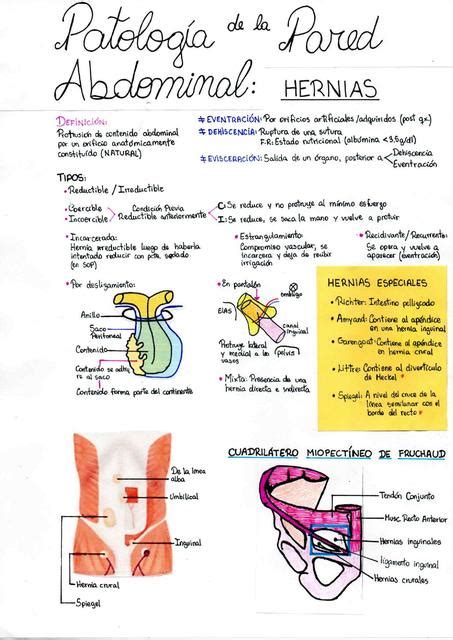 Patología de la Pared
Abdominal: HERNIAS
DEFINICIÓN:
Protrusión de contenido abdominal
por un orificio anatómicamente
constituido (NATURAL)
≠ EVENTRACIÓN: Por orificios artificiales/adquiridos (post qx)
≠ DEHISCENCIA: Ruptura de una sutura
F.R: Estado nutricional (albúmina <3,5g/dl)
≠ EVISCERACIÓN: Salida de un órgano, posterior a
Dehiscencia
Eventración
TIPOS:
• Reductible / Irreductible
• Coercible
• Incoercible
Condición Previa
Reductible anteriormente
C: Se reduce y no protruye al mínimo esfuerzo
I: Se reduce, se saca la mano y vuelve a protuir
• Incarcerada:
Hernia irreductible luego de haberla
intentado reducir con pcte. sedado
(en SOP)
• Estrangulamiento:
Compromiso vascular, se
incarcera y deja de recibir
irrigación
• Recidivante/Recurrente:
Se opera y vuelve a
aparecer (eventración)
• Por deslizamiento:
Anillo
Saco
Peritoneal
Contenido
Contenido se adhi
re al saco
Contenido forma parte del continente
• En pantalón:
ombligo
EIAS
canal
inguinal
Protruye lateral
y medial a los
vasos
(pelvis)
• Mixta: Presencia de una
hernia directa e indirecta
HERNIAS ESPECIALES
• Richter: Intestino pellizcado
• Amyand: Contiene al apéndice
en una hernia inguinal
• Garengeot: Contiene al apéndice
en hernia crural
• Littre: Contiene al divertículo
de Meckel
• Spiegel: A nivel del cruce de la
línea semilunar con el
borde del recto
De la línea
alba
Umbilical
Inguinal
Hernia crural
Spiegel
CUADRILÁTERO MIOPECTÍNEO DE FRUCHAUD
Tendón Conjunto
Musc Recto Anterior
Hernias inguinales
ligamento inguinal
Hernias crurales